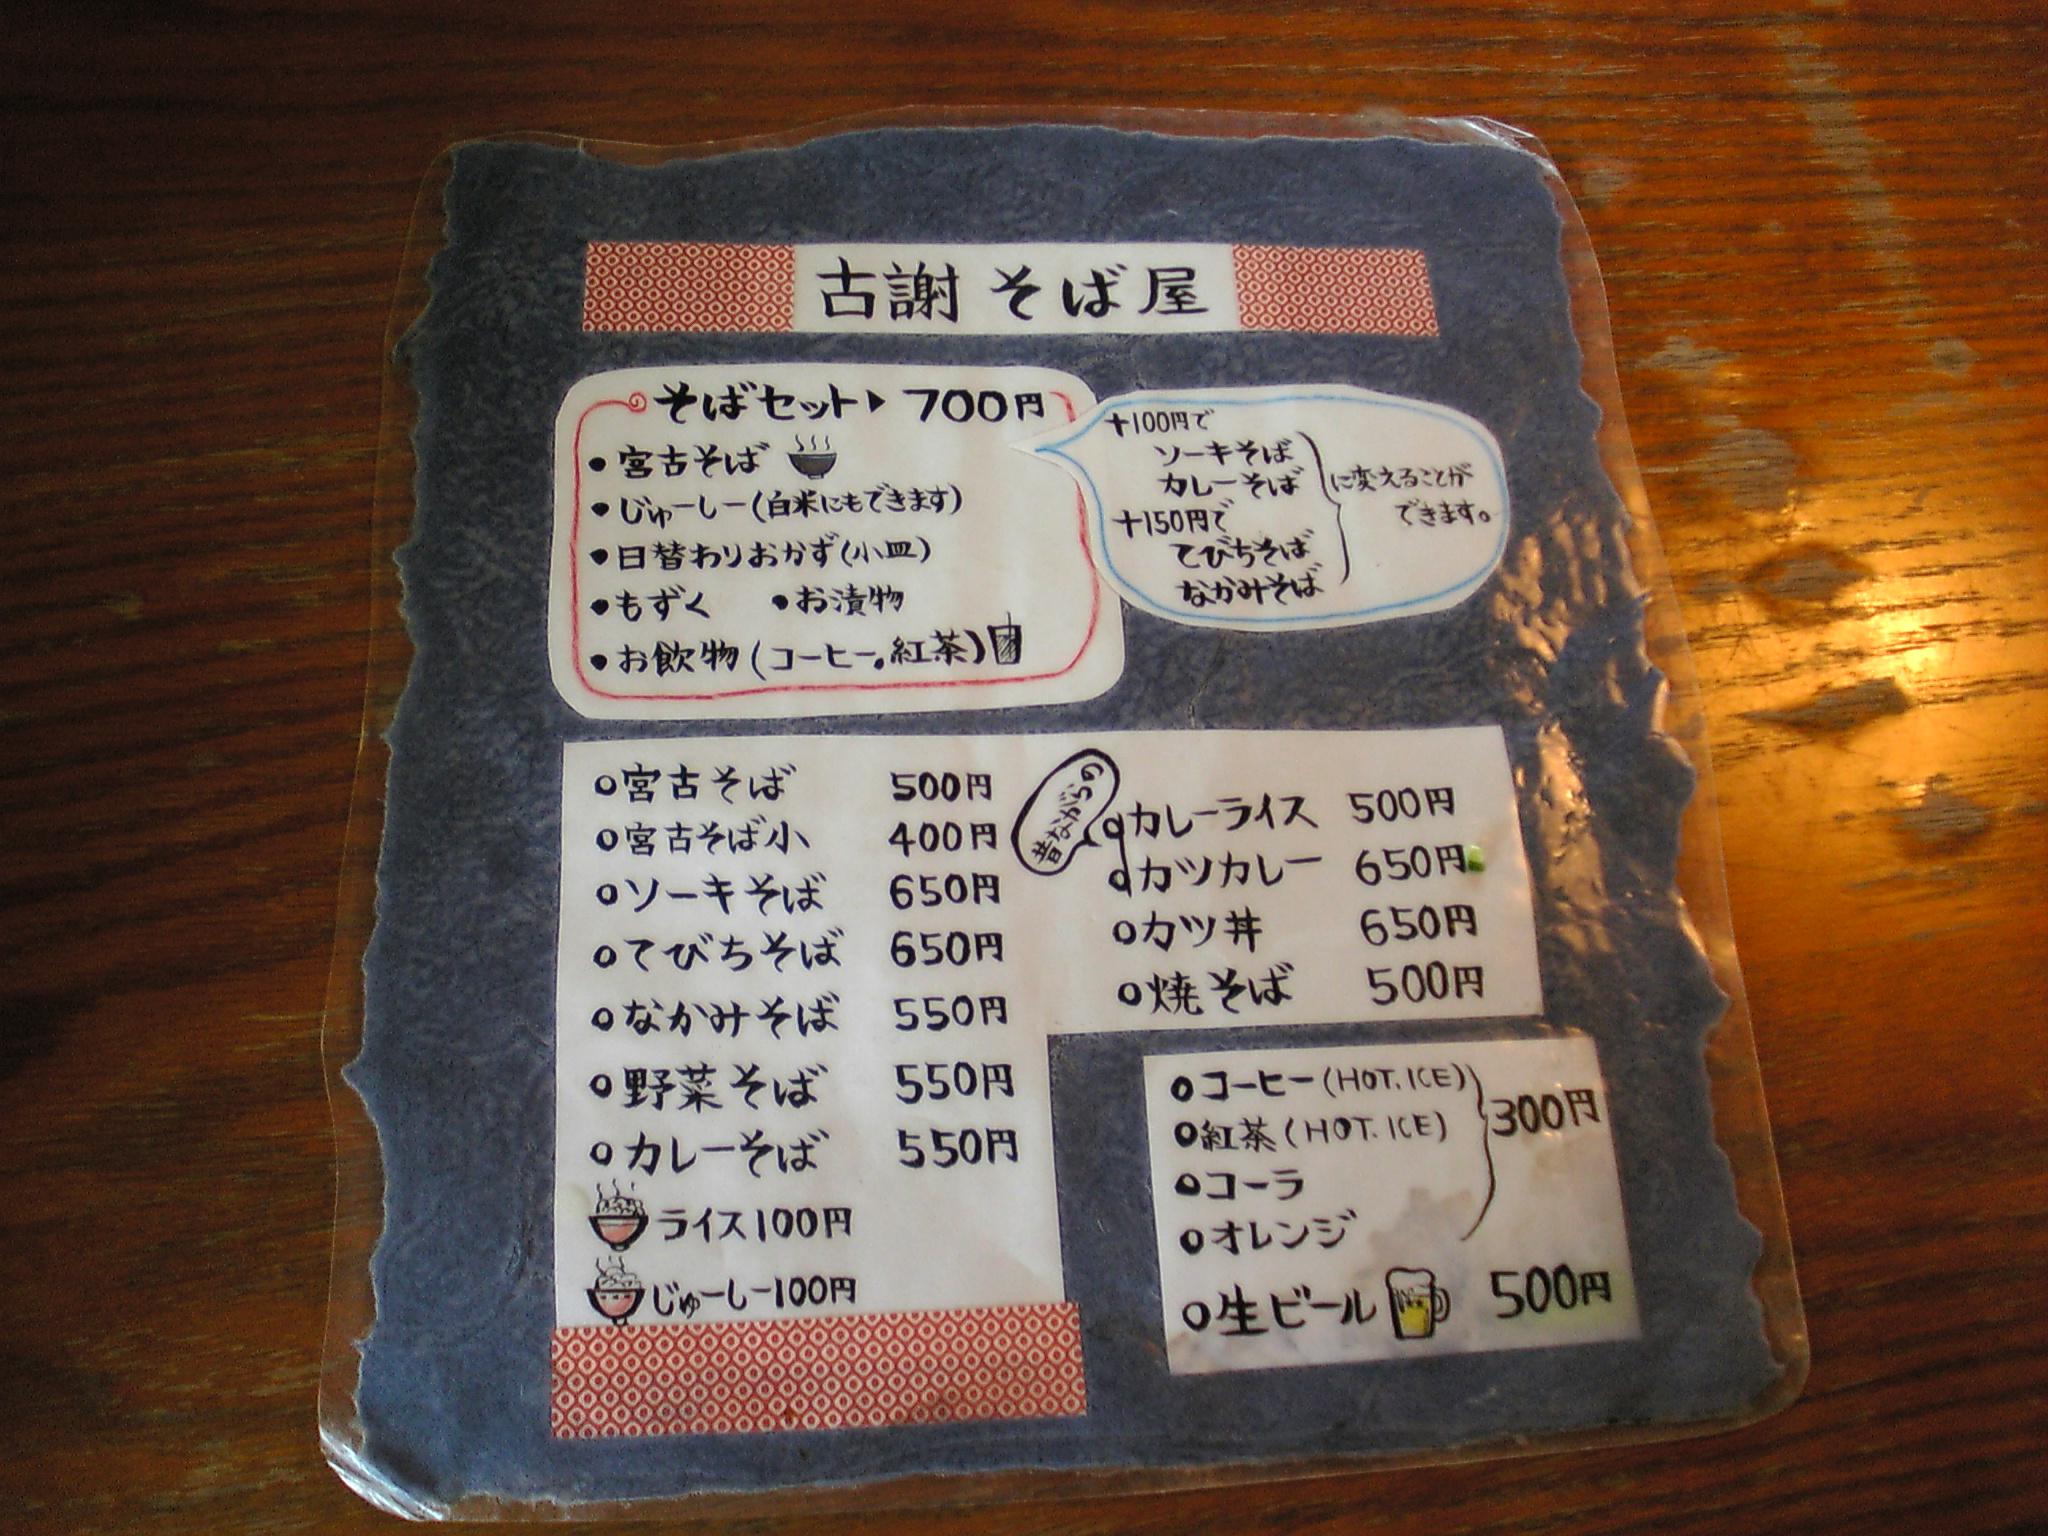 古謝そば屋
そばセット▶ 700円
•宮古そば
•じゅーしー(白米にもできます)
•日替わりおかず(小皿)
•もずく •お漬物
•お飲物(コーヒー。紅茶)
+100円で
ソーキそば
カレーそば
+150円で
てびちそば
なかみそば
に変えることが
できます。
○宮古そば 500円
○宮古そば小 400円
○ソーキそば 650円
○てびちそば 650円
○なかみそば 550円
○野菜そば 550円
○カレーそば 550円
ライス100円
じゅーしー100円
昔ながらの
○カレーライス 500円
○カツカレー 650円
○カツ丼 650円
○焼そば 500円
○コーヒー(HOT.ICE)
○紅茶(HOT.ICE)
○コーラ
○オレンジ
300円
○生ビール 500円